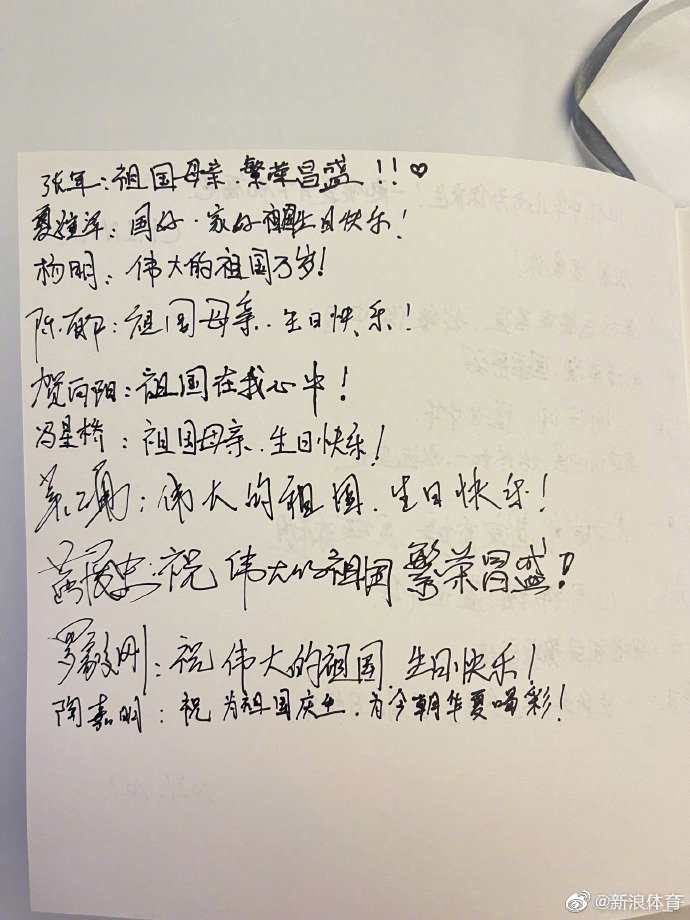 张军：祖国母亲 繁荣昌盛！！♡
夏煊泽：国好·家好 祖国生日快乐！
杨明：伟大的祖国万岁！
陈郁：祖国母亲.生日快乐！
贺向阳：祖国在我心中！
冯星桥：祖国母亲.生日快乐！
：伟大的祖国.生日快乐！
：祝 伟大的祖国 繁荣昌盛！
罗毅刚：祝 伟大的祖国 生日快乐！
陶嘉明：祝 为祖国庆生.为今朝华夏喝彩！
2021.10.1
@新浪体育